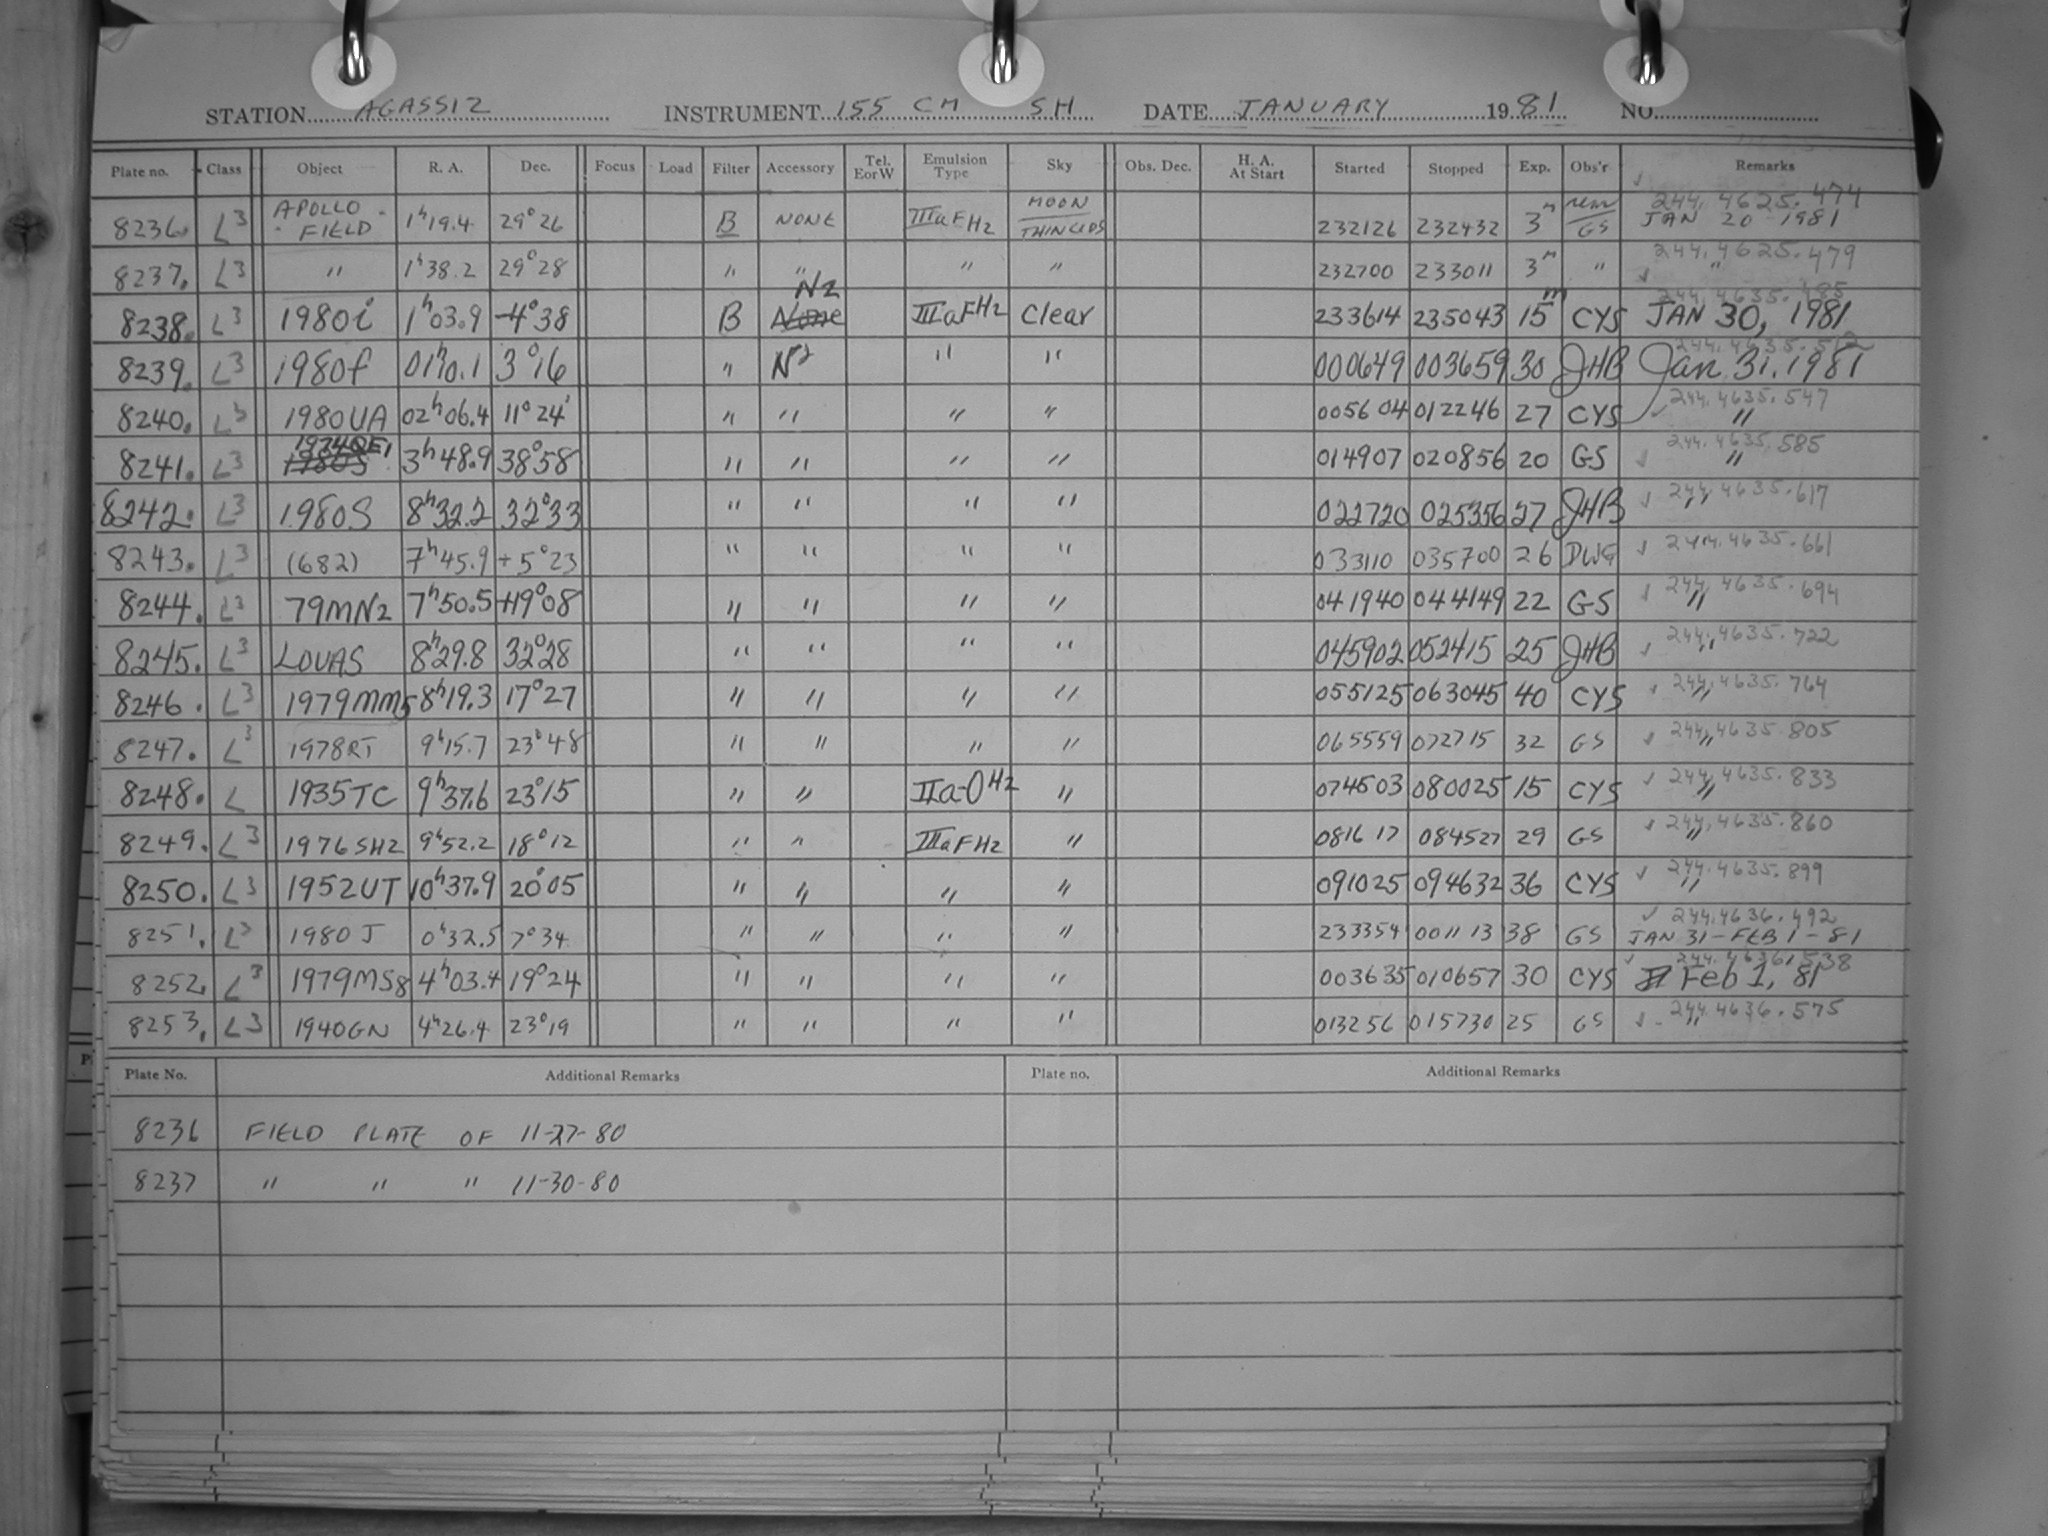 STATION AGASSIZ INSTRUMENT 155 CM SH DATE JANUARY 1981 NO.
Plate no. Class Object R. A. Dec. Focus Load Filter Accessory Tel. E or W Emulsion Type Sky Obs. Dec. H. A. At Start Started Stopped Exp. Obs'r Remarks
8236. L3 APOLLO FIELD 1h19.4 29°26 B NONE IIIaFH2 MOON THIN CLDS 232126 232432 3m GS 244,4625.474 JAN 20 1981
8237. L3 " 1h38.2 29°28 " " " " 232700 233011 3m " 244,4625.479 "
8238. L3 1980i 1h03.9 -4°38 B None N2 IIIaFH2 Clear 233614 235043 15m CYS 244,4635.485 JAN 30, 1981
8239. L3 1980f 01h0.1 3°16 " N2 " " 000649 003659 30 JHB 244,4635.512 Jan. 31, 1981
8240. L3 1980UA 02h06.4 11°24' " " " " 005604 012246 27 CYS 244,4635.547 "
8241. L3 1980S 1934QE1 3h48.9 38°58 " " " " 014907 020856 20 GS 244,4635.585 "
8242. L3 1980S 8h32.2 32°33 " " " " 022720 025356 27 JHB 244,4635.617 "
8243. L3 (682) 7h45.9 +5°23 " " " " 033110 035700 26 DWG 244,4635.661
8244. L3 79MN2 7h50.5 +19°08 " " " " 041940 044149 22 GS 244,4635.694 "
8245. L3 LOVAS 8h29.8 32°28 " " " " 045902 052415 25 JHB 244,4635.722 "
8246. L3 1979MM5 8h19.3 17°27 " " " " 055125 063045 40 CYS 244,4635.764 "
8247. L3 1978RT 9h15.7 23°48 " " " " 065559 072715 32 GS 244,4635.805 "
8248. L 1935TC 9h37.6 23°15 " " IIa-OH2 " 074503 080025 15 CYS 244,4635.833 "
8249. L3 1976SH2 9h52.2 18°12 " " IIIaFH2 " 081617 084527 29 GS 244,4635.860 "
8250. L3 1952UT 10h37.9 20°05 " " " " 091025 094632 36 CYS 244,4635.899 "
8251. L3 1980J 0h32.5 7°34 " " " " 233354 001113 38 GS 244,4636.492 JAN 31-FEB 1-81
8252. L3 1979MS8 4h03.4 19°24 " " " " 003635 010657 30 CYS 244,4636.538 Feb 1, 81
8253. L3 1940GN 4h26.4 23°19 " " " " 013256 015730 25 GS 244,4636.575 "
Plate No. Additional Remarks Plate no. Additional Remarks
8236 FIELD PLATE OF 11-27-80
8237 " " " 11-30-80